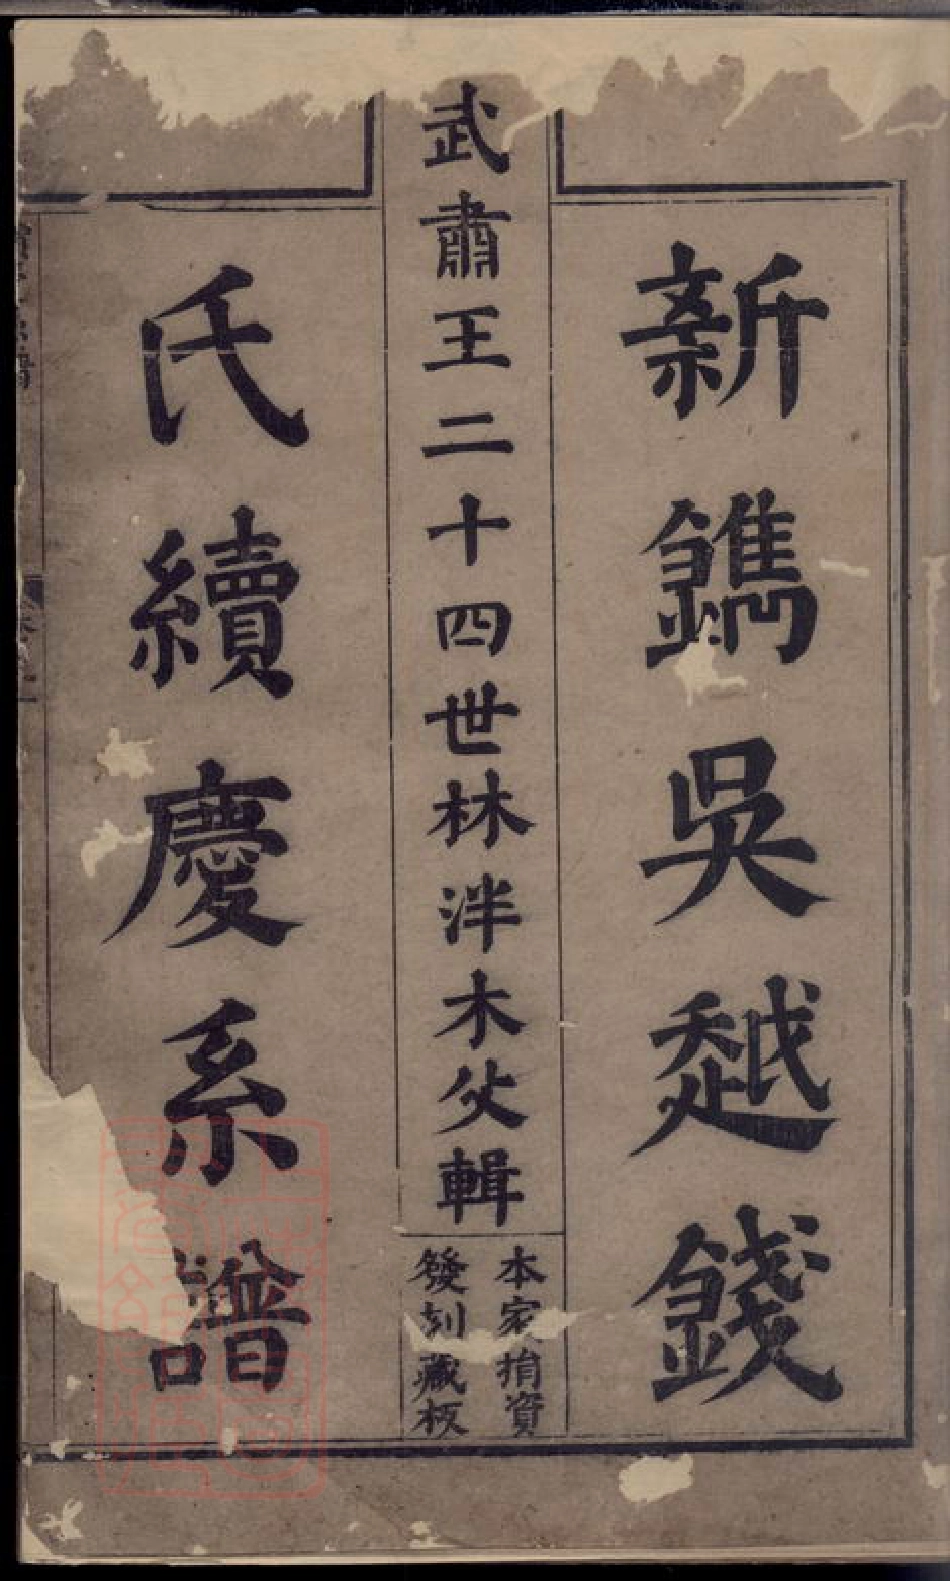 新鐫吳越錢
武肅王二十四世林泮木父輯
本家捐資
發刻藏板
氏續慶系譜